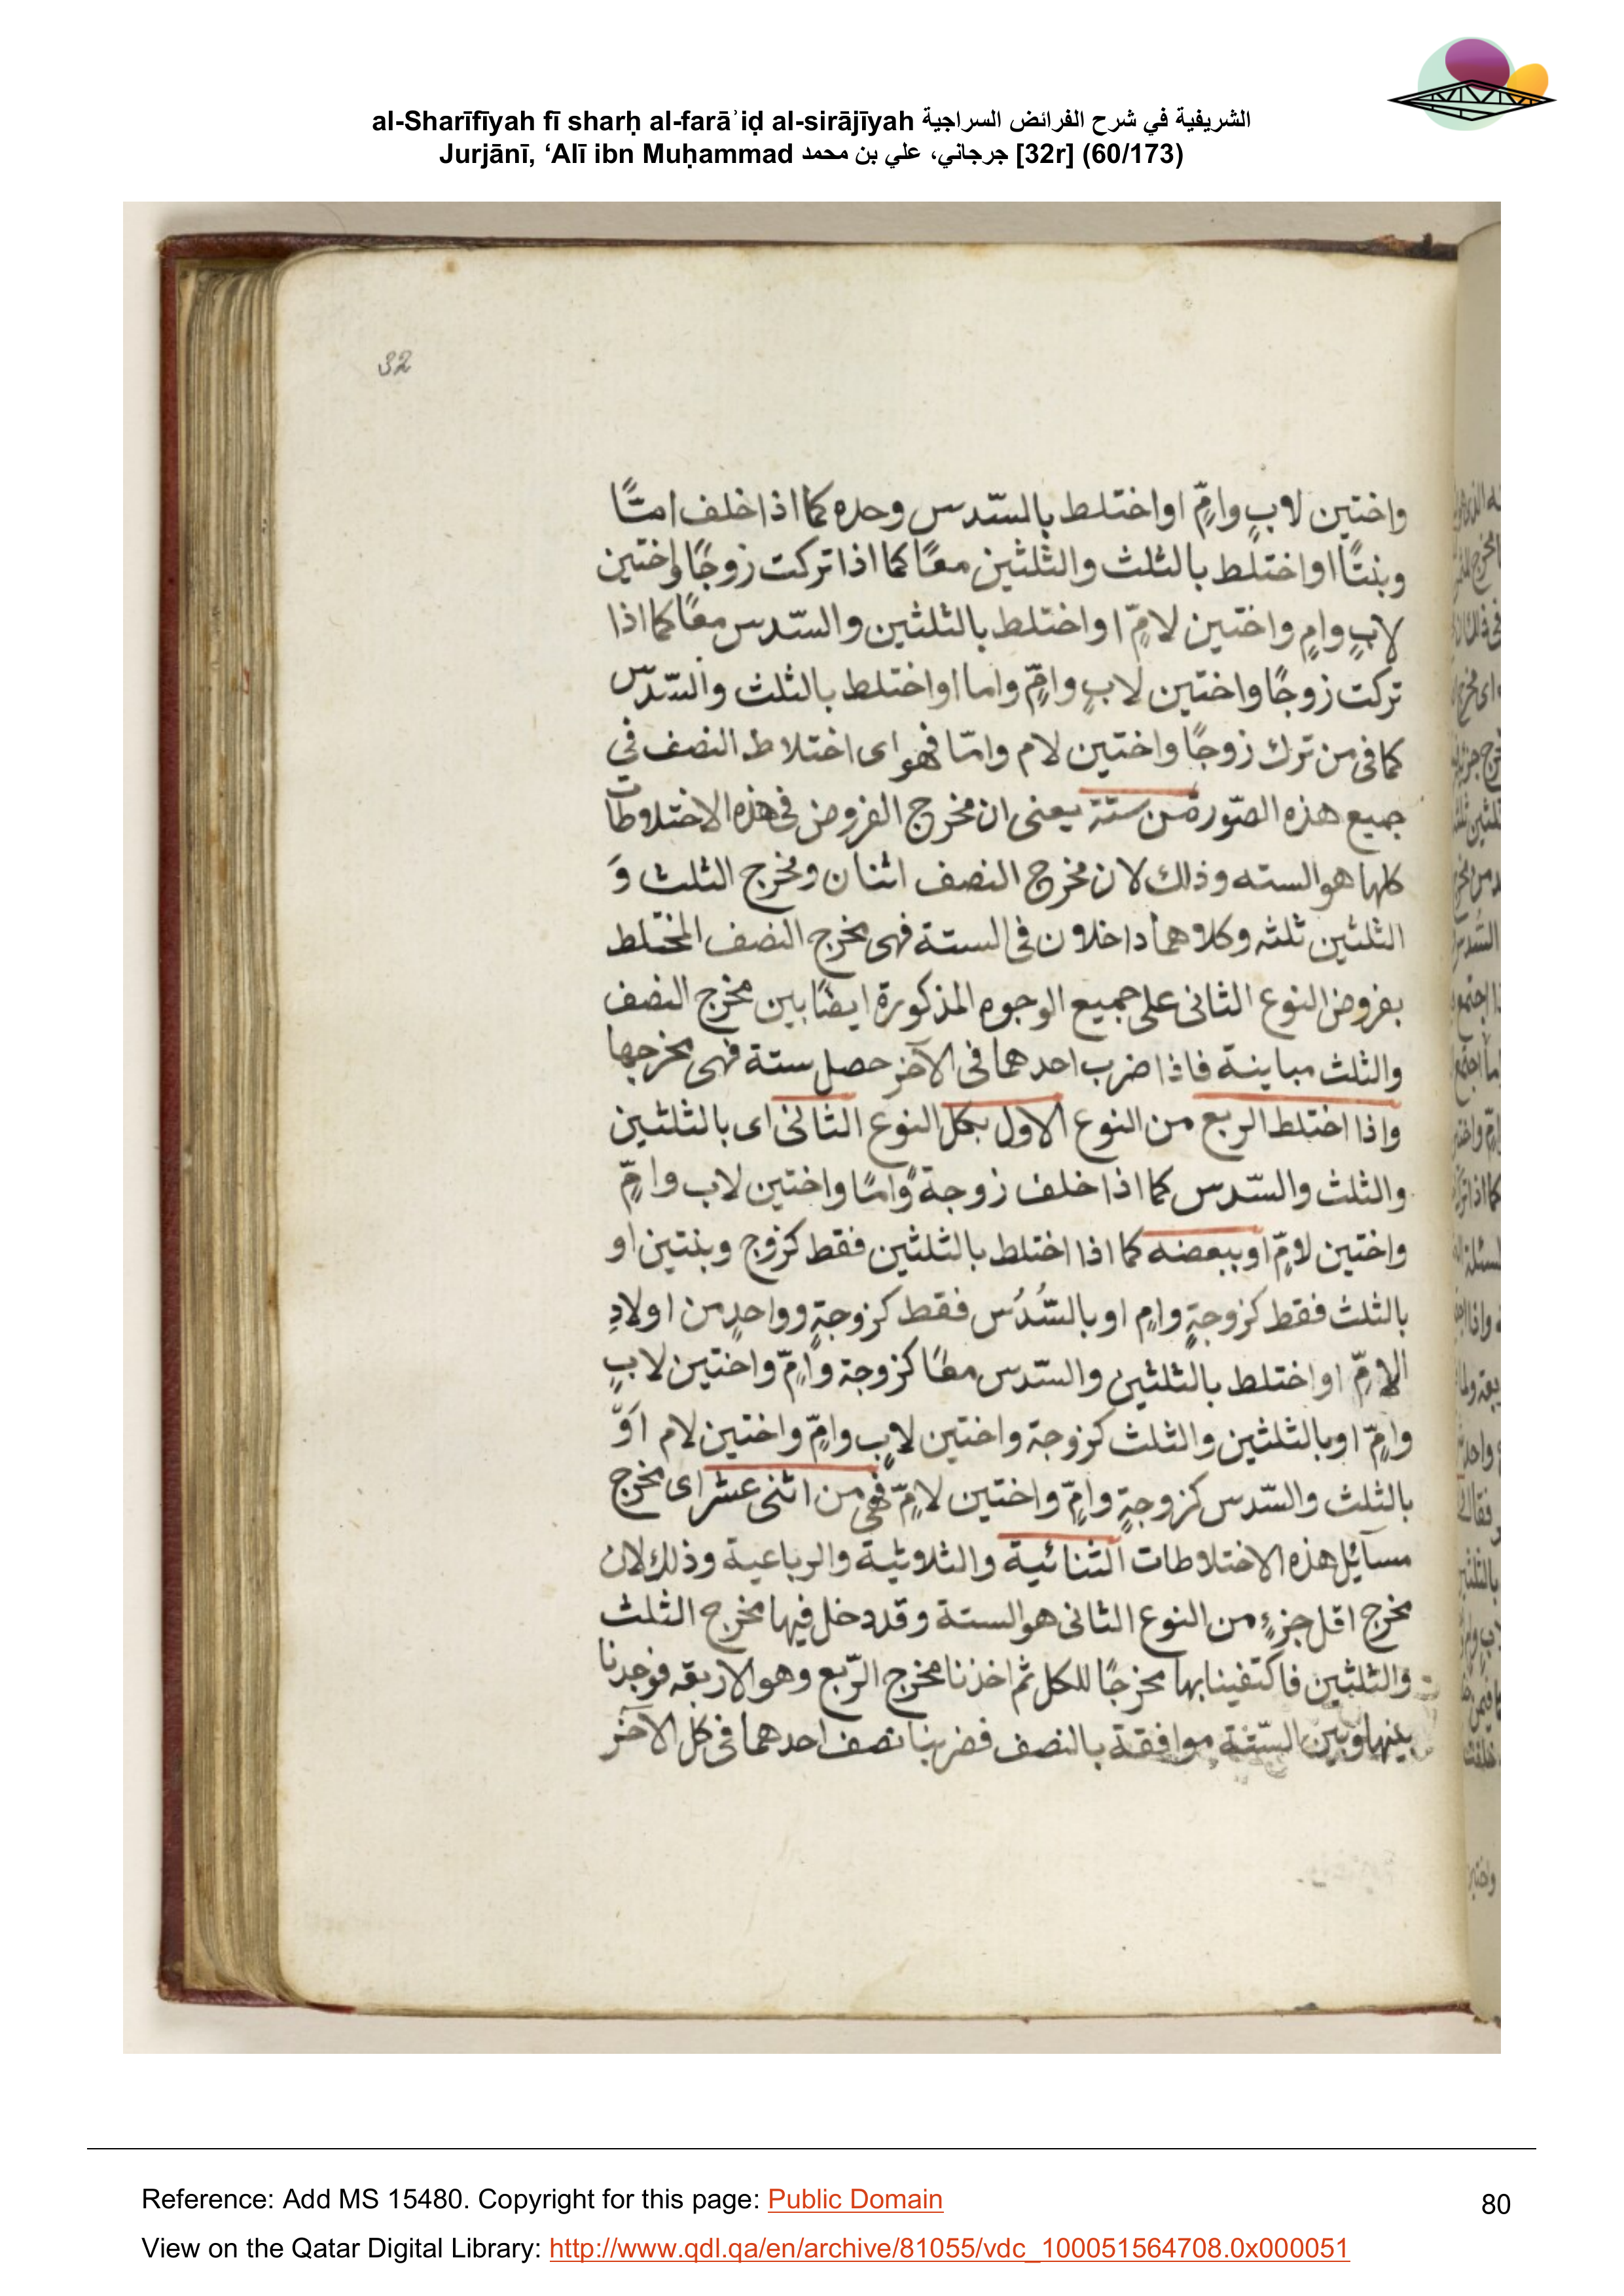 al-Sharīfīyah fī sharḥ al-farāʾiḍ al-sirājīyah الشريفية في شرح الفرائض السراجية
Jurjānī, ‘Alī ibn Muḥammad جرجاني، علي بن محمد [32r] (60/173)
32
واختين لابٍ وامٍّ او اختلط بالسّدس وحده كما اذا خلف امتًّا
وبنتًا او اختلط بالثلث والثلثين معًا كما اذا تركت زوجًا واختين
لابٍ وامٍ واختين لامٍّ او اختلط بالثلثين والسّدس معًا كما اذا
تركت زوجًا واختين لابٍ وامٍّ واما او اختلط بالثلث والسّدس
كما فى من ترك زوجًا واختين لام وامّا فهو اى اختلاط النصف في
جميع هذه الصّورة من ستة يعنى ان مخرج الفروض فى هذه الاختلاطات
كلها هو السته وذلك لان مخرج النصف اثنان ومخرج الثلث وَ
الثلثين ثلثه وكلاهما داخلان فى الستة فهى مخرج النصف المختلط
بفروض النوع الثانى على جميع الوجوه المذكورة ايضًا بين مخرج النصف
والثلث مباينة فاذا ضرب احدهما فى الآخر حصل ستة فهى مخرجها
واذا اختلط الربع من النوع الاول بكل النوع الثانى اى بالثلثين
والثلث والسّدس كما اذا خلف زوجة وامًا واختين لاب وامٍّ
واختين لامٍّ او ببعضه كما اذا اختلط بالثلثين فقط كزوج وبنتين او
بالثلث فقط كزوجةٍ وامٍ او بالسُّدُس فقط كزوجةٍ وواحدٍ من اولادِ
الامّ او اختلط بالثلثين والسّدس معًا كزوجة وامٍّ واختين لابٍ
وامٍّ او بالثلثين والثلث كزوجة واختين لابٍ وامٍّ واختين لام اوّ
بالثلث والسّدس كزوجةٍ وامٍّ واختين لامٍّ فهى من اثنى عشر اى مخرج
مسآئل هذه الاختلاطات الثنائية والثلاثية والرباعية وذلك لان
مخرج اقل جزءٍ من النوع الثانى هو الستة وقد دخل فيها مخرج الثلث
والثلثين فاكتفينا بها مخرجًا للكل ثم اخذنا مخرج الرّبع وهو الاربعه فوجدنا
بينها وبين السّتة موافقة بالنصف فضربنا نصف احدهما فى كل الآخر
Reference: Add MS 15480. Copyright for this page: Public Domain
80
View on the Qatar Digital Library: http://www.qdl.qa/en/archive/81055/vdc_100051564708.0x000051